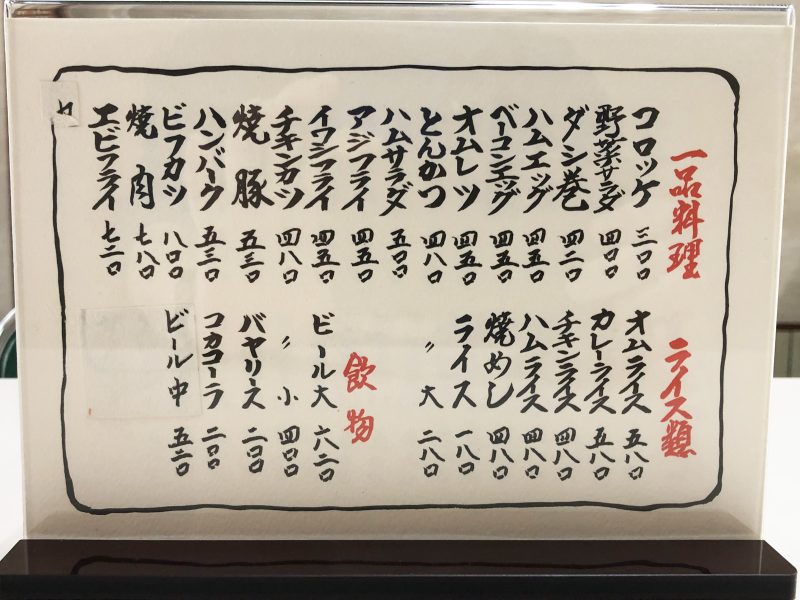 一品料理
コロッケ 三〇〇
野菜サラダ 四〇〇
ダシ巻 四二〇
ハムエッグ 四五〇
ベーコンエッグ 四五〇
オムレツ 四五〇
とんかつ 四八〇
ハムサラダ 五〇〇
アジフライ 四五〇
イワシフライ 四五〇
チキンカツ 四八〇
焼豚 五三〇
ハンバーク 五三〇
ビフカツ 八〇〇
焼肉 七八〇
エビフライ 七二〇
ライス類
オムライス 五八〇
カレーライス 五八〇
チキンライス 四八〇
ハムライス 四八〇
焼めし 四八〇
ライス 一八〇
〃 大 二八〇
飲物
ビール大 六二〇
〃 小 四〇〇
バヤリース 二〇〇
コカコーラ 二〇〇
ビール中 五二〇